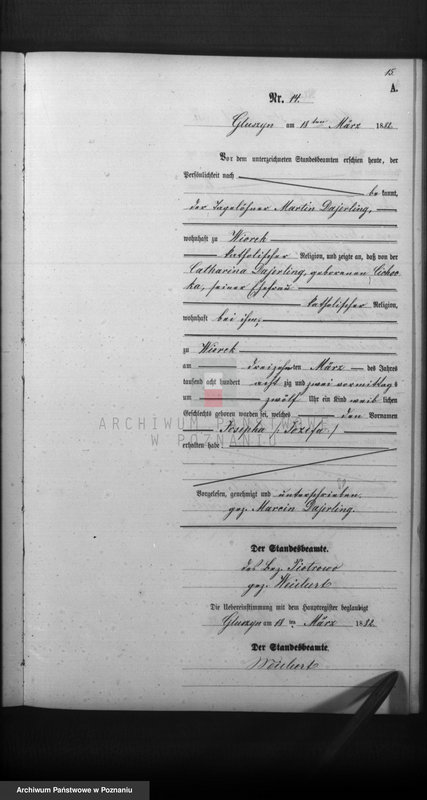 15
A.
Nr. 14.
Gluszyn am 18 ten März 1882
Vor dem unterzeichneten Standesbeamten erschien heute, der
Persönlichkeit nach
be kannt,
der Tagelöhner Martin Dajerling,
wohnhaft zu Wiorek
katholischer Religion, und zeigte an, daß von der
Catharina Dajerling, geborenen Cichoc-
ka, seiner Ehefrau
katholischer Religion,
wohnhaft bei ihm,
zu Wiorek
am dreizehnten März des Jahres
tausend acht hundert acht zig und zwei vormittags
um zwölf Uhr ein Kind weib lichen
Geschlechts geboren worden sei, welches den Vornamen
Josepha /: Jozefa :/
erhalten habe.
ARCHIWUM PAŃSTWOWE
W POZNANIU
Vorgelesen, genehmigt und unterschrieben.
gez. Marcin Dajerling.
Der Standesbeamte.
des Bez. Piotrowo
gez. Weichert
Die Uebereinstimmung mit dem Hauptregister beglaubigt
Gluszyn am 18 ten März 1882.
Der Standesbeamte.
Weichert
Archiwum Państwowe w Poznaniu